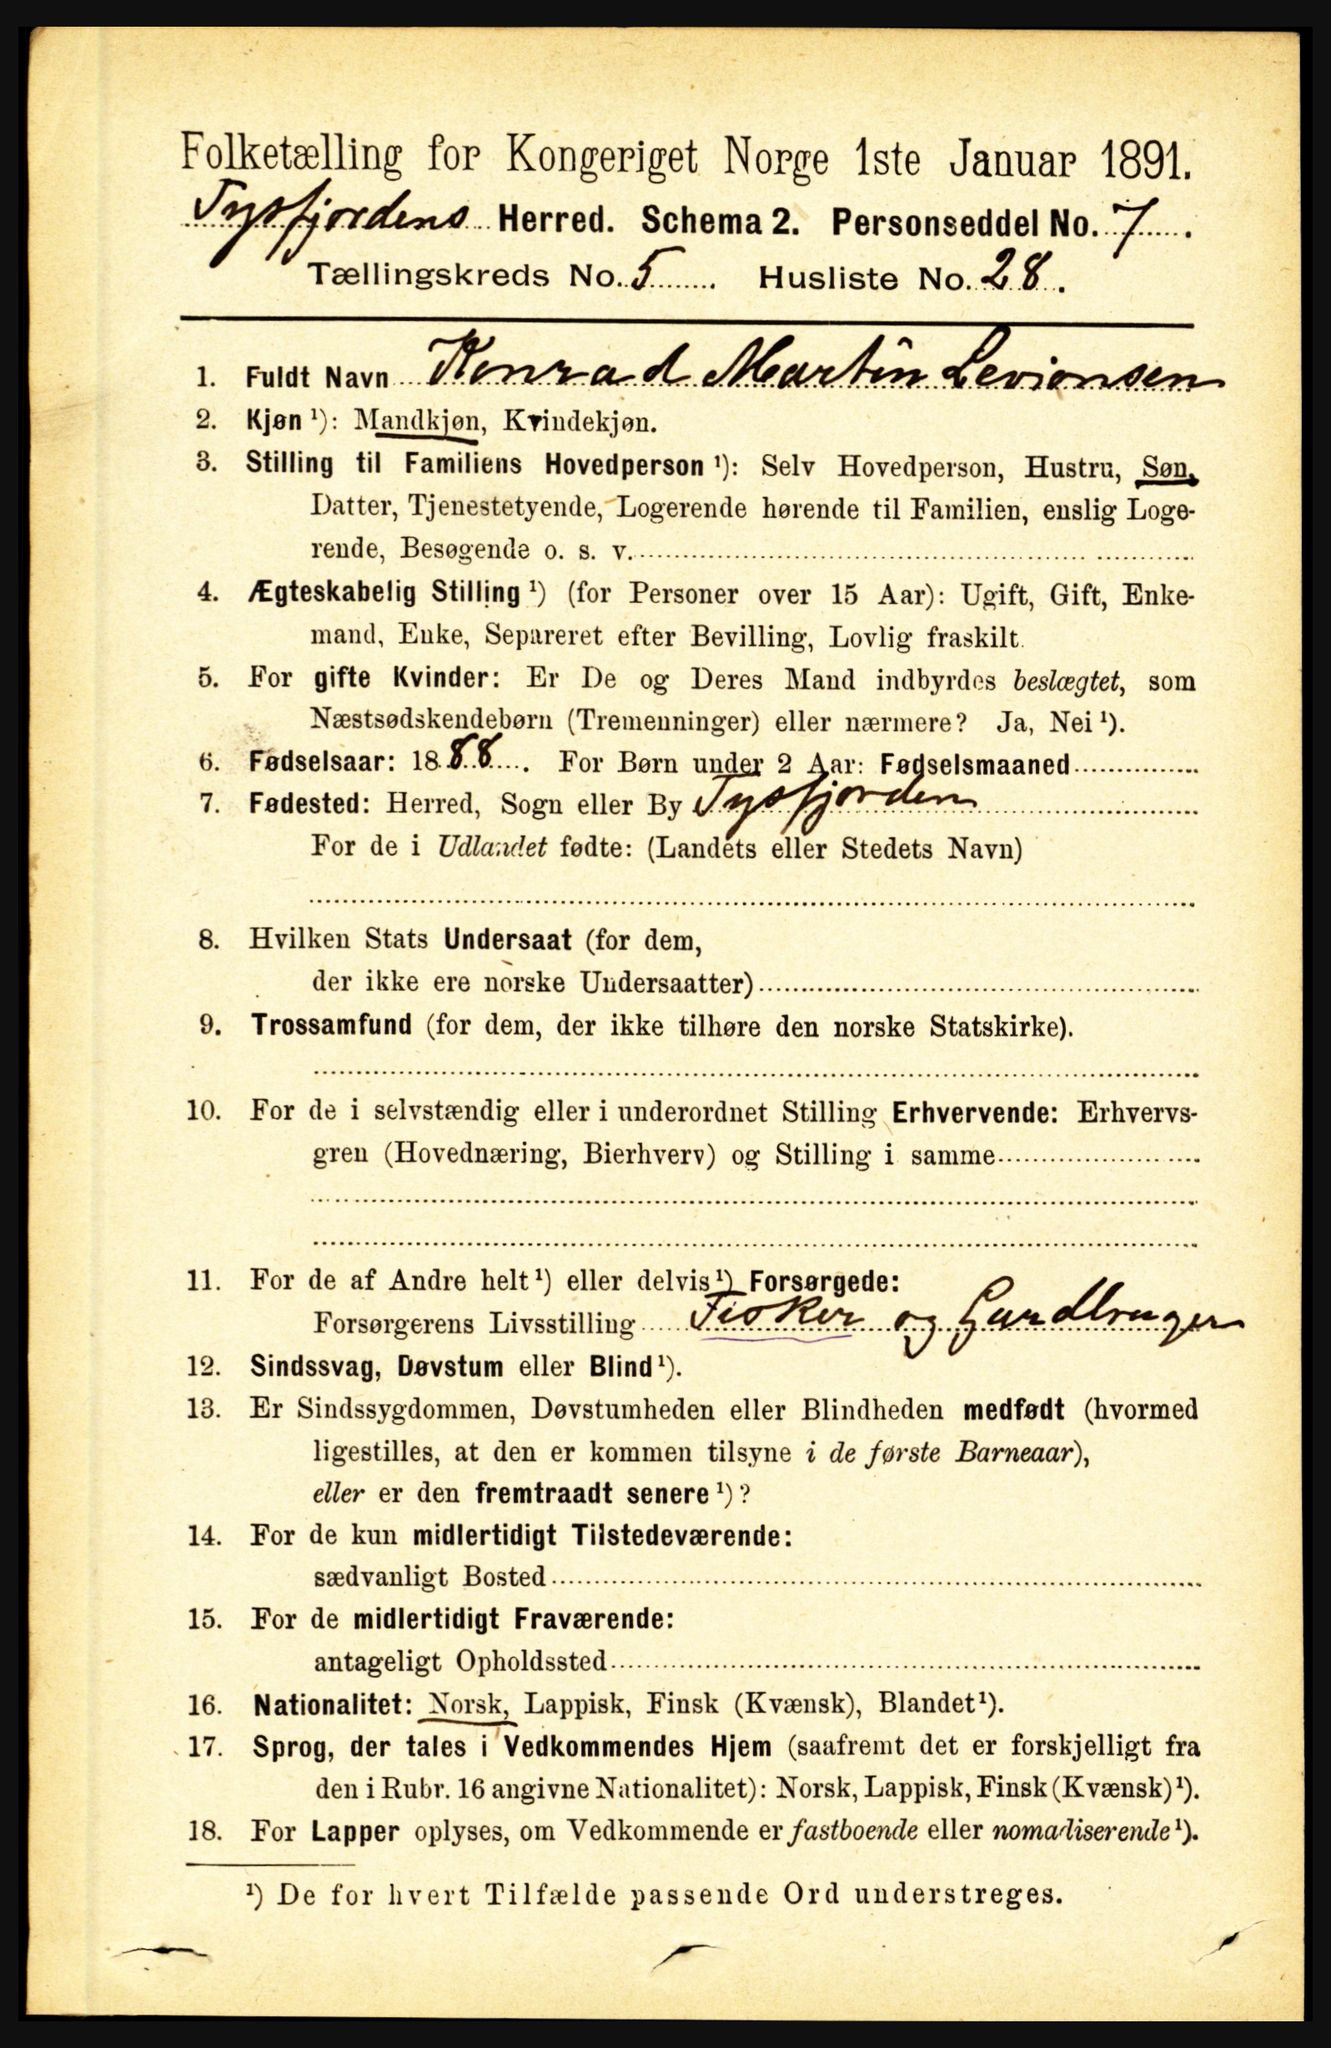 Folketælling for Kongeriget Norge 1ste Januar 1891.
Tysfjordens Herred. Schema 2. Personseddel No. 7.
Tællingskreds No. 5. Husliste No. 28.
1. Fuldt Navn Konrad Martin Levionsen
2. Kjøn ¹): Mandkjøn, Kvindekjøn.
3. Stilling til Familiens Hovedperson ¹): Selv Hovedperson, Hustru, Søn,
Datter, Tjenestetyende, Logerende hørende til Familien, enslig Loge-
rende, Besøgende o. s. v.
4. Ægteskabelig Stilling ¹) (for Personer over 15 Aar): Ugift, Gift, Enke-
mand, Enke, Separeret efter Bevilling, Lovlig fraskilt.
5. For gifte Kvinder: Er De og Deres Mand indbyrdes beslægtet, som
Næstsødskendebørn (Tremenninger) eller nærmere? Ja, Nei ¹).
6. Fødselsaar: 1888. For Børn under 2 Aar: Fødselsmaaned
7. Fødested: Herred, Sogn eller By Tysfjorden
For de i Udlandet fødte: (Landets eller Stedets Navn)
8. Hvilken Stats Undersaat (for dem,
der ikke ere norske Undersaatter)
9. Trossamfund (for dem, der ikke tilhøre den norske Statskirke).
10. For de i selvstændig eller i underordnet Stilling Erhvervende: Erhvervs-
gren (Hovednæring, Bierhverv) og Stilling i samme
11. For de af Andre helt ¹) eller delvis ¹) Forsørgede:
Forsørgerens Livsstilling Fisker og Gardbruger
12. Sindssvag, Døvstum eller Blind ¹).
13. Er Sindssygdommen, Døvstumheden eller Blindheden medfødt (hvormed
ligestilles, at den er kommen tilsyne i de første Barneaar),
eller er den fremtraadt senere ¹)?
14. For de kun midlertidigt Tilstedeværende:
sædvanligt Bosted
15. For de midlertidigt Fraværende:
antageligt Opholdssted
16. Nationalitet: Norsk, Lappisk, Finsk (Kvænsk), Blandet ¹).
17. Sprog, der tales i Vedkommendes Hjem (saafremt det er forskjelligt fra
den i Rubr. 16 angivne Nationalitet): Norsk, Lappisk, Finsk (Kvænsk) ¹).
18. For Lapper oplyses, om Vedkommende er fastboende eller nomadiserende ¹).
¹) De for hvert Tilfælde passende Ord understreges.